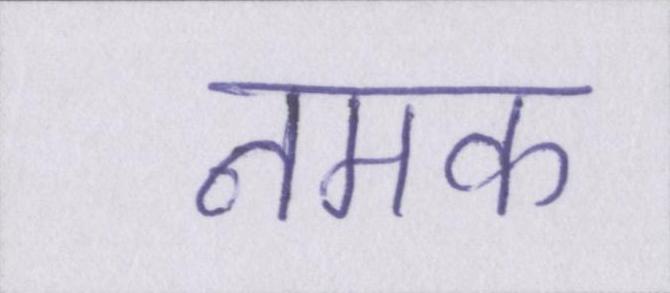 नमक